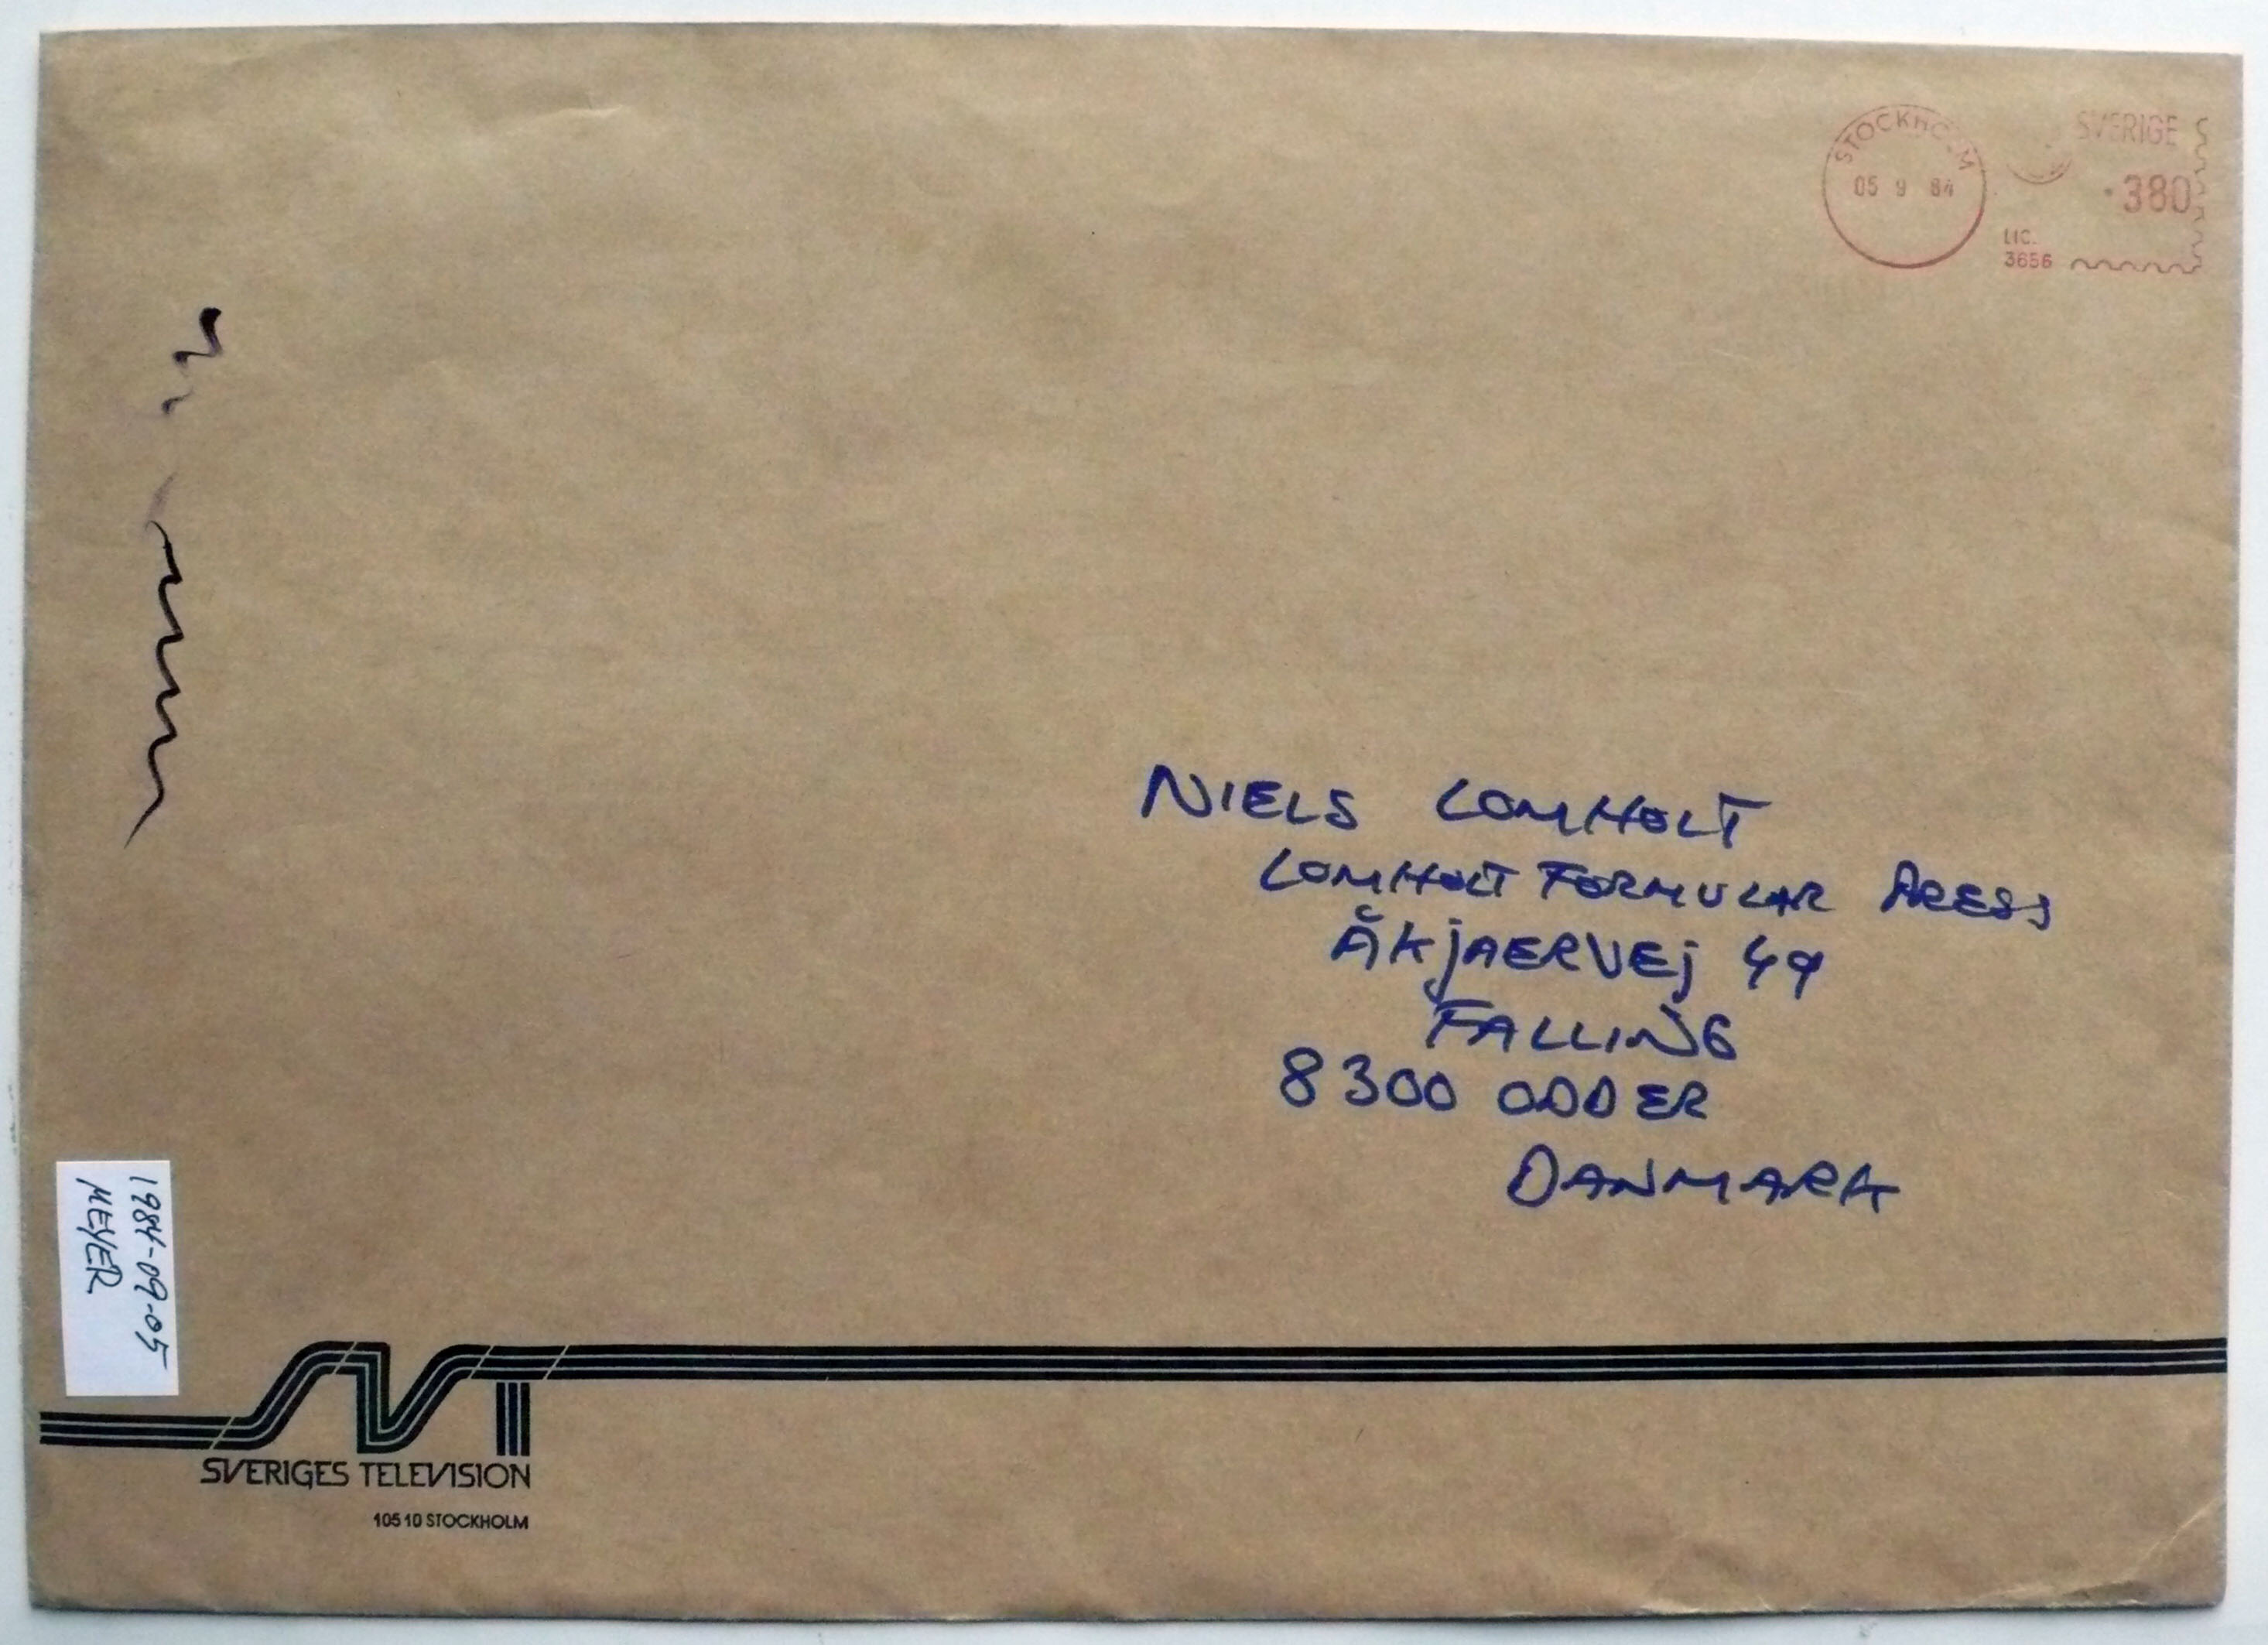 STOCKHOLM
05 9 84
SVERIGE
380
LIC.
3656
NIELS LOMHOLT
LOMHOLT FORMULAR PRESS
ÅKJAERVEJ 49
FALLING
8300 ODDER
DANMARK
1984-09-05
MEYER
SVT
SVERIGES TELEVISION
105 10 STOCKHOLM